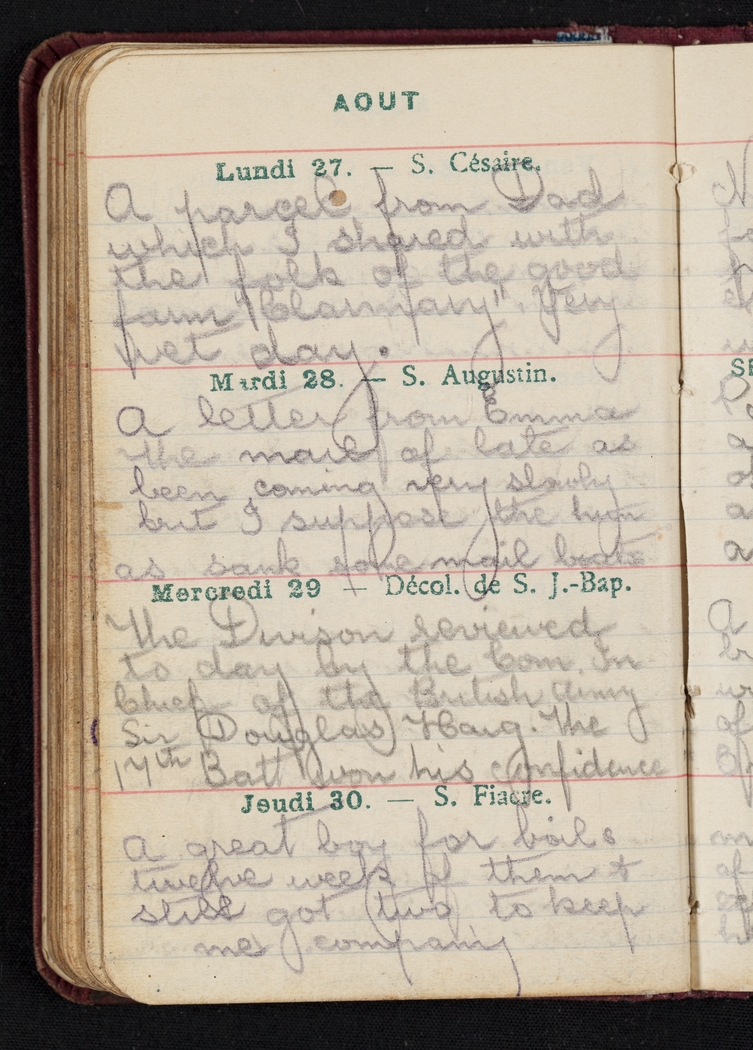 AOUT
Lundi 27. — S. Césaire.
A parcel from Dad
which I shared with
the folk of the good
farm "Clarmary". Very
wet day.
Mardi 28. — S. Augustin.
A letter from Emma
The mail of late as
been coming very slowly
but I suppose the hun
as sank some mail boats
Mercredi 29 — Décol. de S. J.-Bap.
The Divison reviewed
to day by the Com. In
Chief of the British Army
Sir Douglas Haig. The
17th Batt won his confidence
Jeudi 30. — S. Fiacre.
A great boy for boils
twelve weeks of them &
still got two to keep
me company